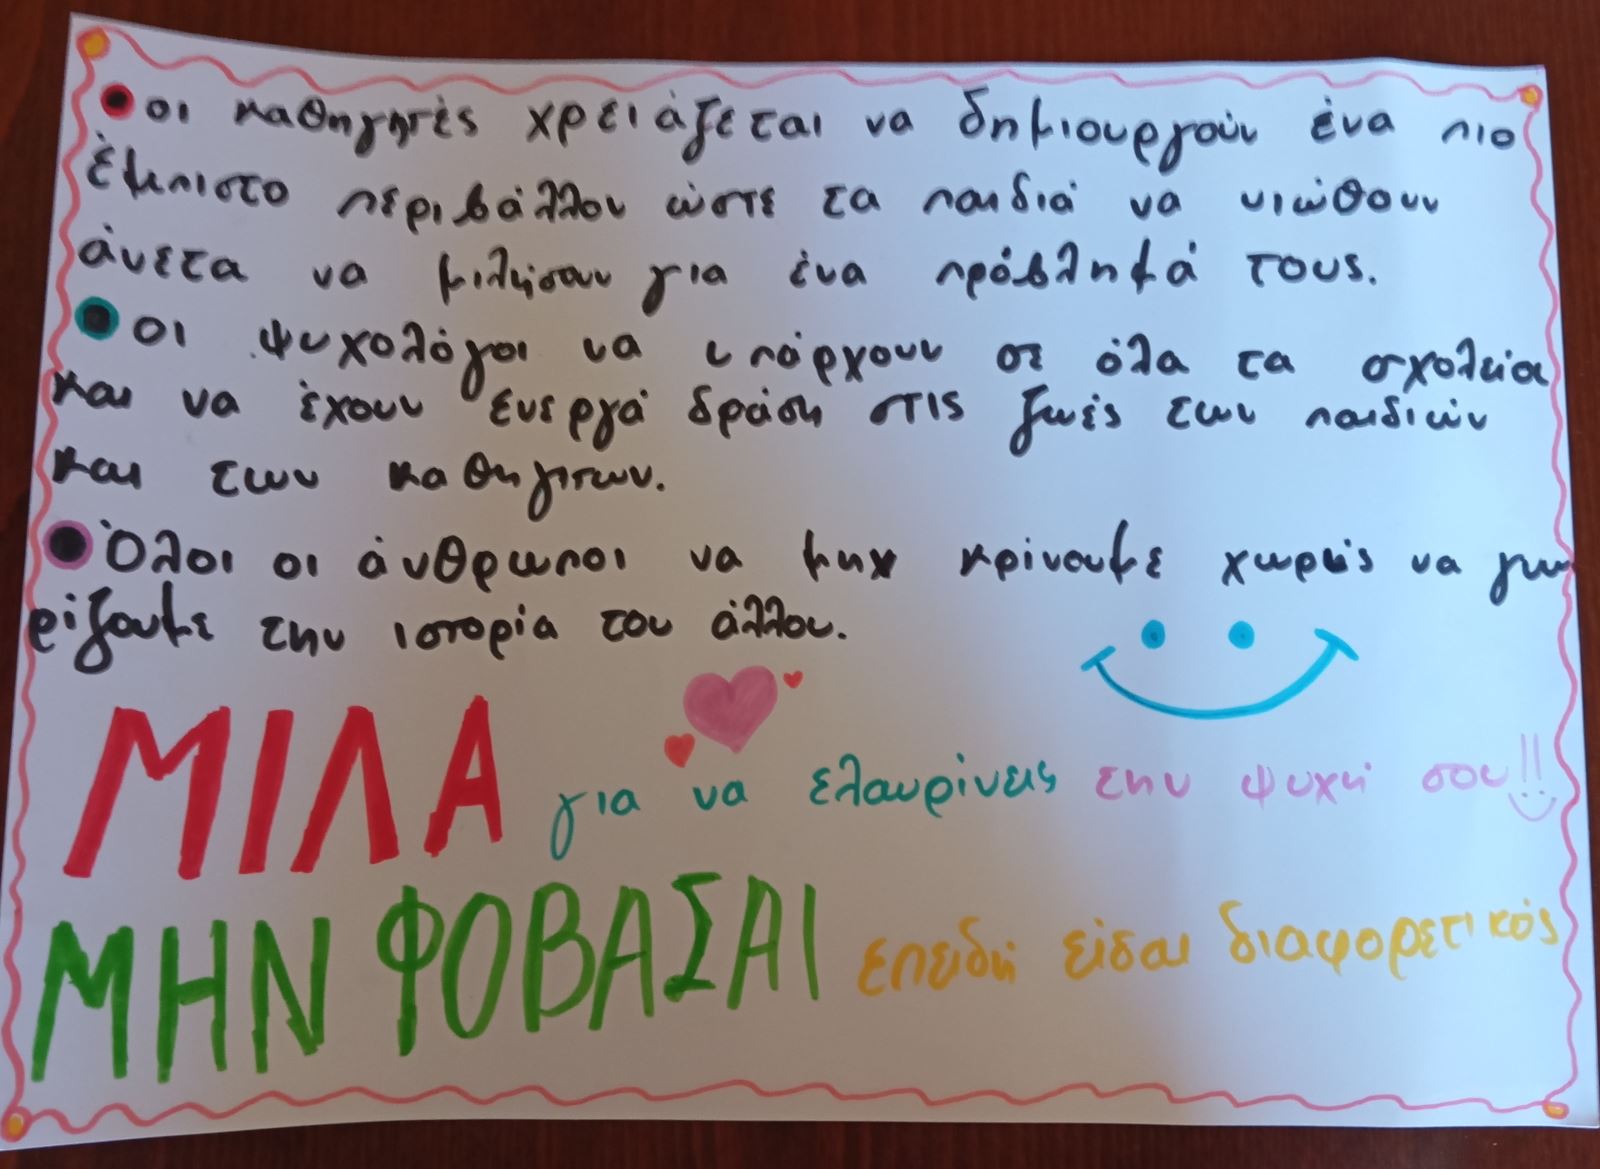 οι καθηγητές χρειάζεται να δημιουργούν ένα πιο
έμπιστο περιβάλλον ώστε τα παιδιά να νιώθουν
άνετα να μιλήσουν για ένα πρόβλημά τους.
οι ψυχολόγοι να υπάρχουν σε όλα τα σχολεία
και να έχουν ενεργά δράση στις ζωές των παιδιών
και των καθηγητων.
Όλοι οι άνθρωποι να μην κρίνουμε χωρίς να γνω
ρίζουμε την ιστορία του άλλου.
ΜΙΛΑ για να ελαυρίνεις την ψυχή σου!!
ΜΗΝ ΦΟΒΑΣΑΙ επειδή είσαι διαφορετικός